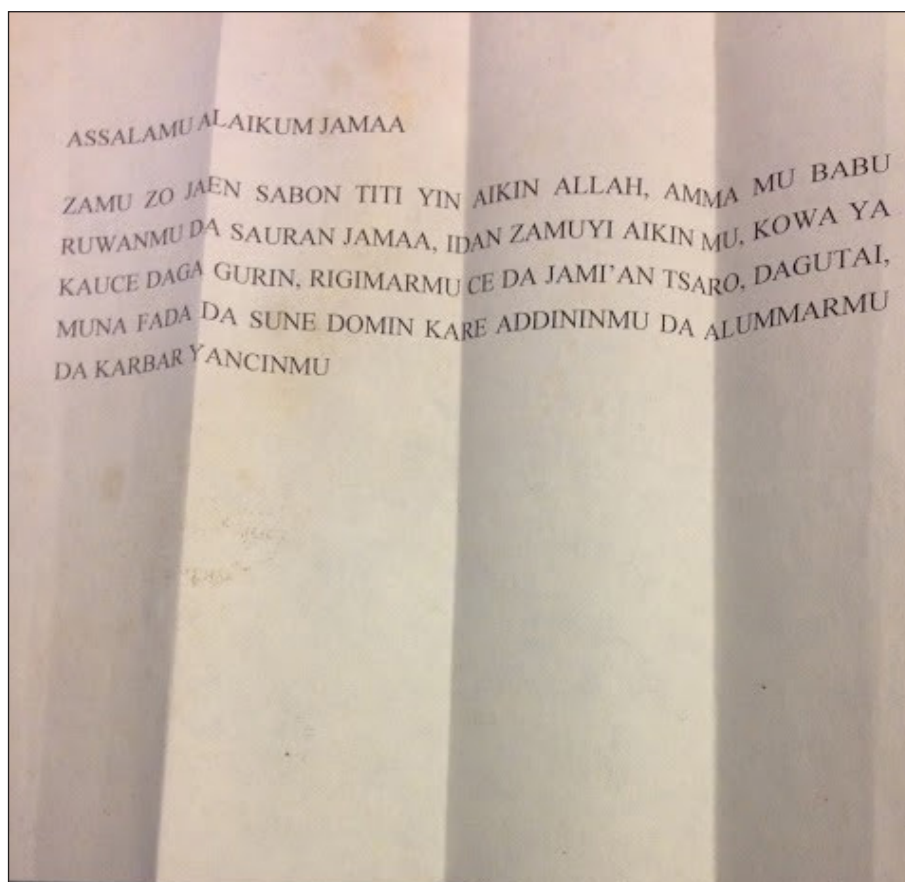 ASSALAMU ALAIKUM JAMAA
ZAMU ZO JAEN SABON TITI YIN AIKIN ALLAH, AMMA MU BABU
RUWANMU DA SAURAN JAMAA, IDAN ZAMUYI AIKIN MU, KOWA YA
KAUCE DAGA GURIN, RIGIMARMU CE DA JAMI'AN TSARO, DAGUTAI,
MUNA FADA DA SUNE DOMIN KARE ADDININMU DA ALUMMARMU
DA KARBAR YANCINMU